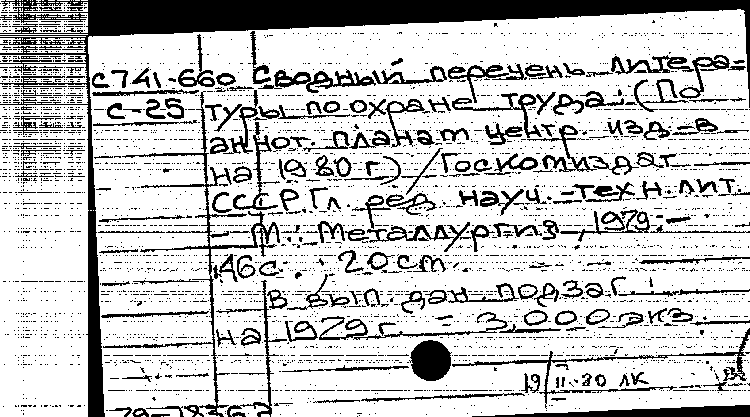 С741-660 Сводный перечень литера-
С-25 туры по охране труда: (По
аннот. планам центр. изд-в
на 1980 г.) / Госкомиздат
СССР. Гл. ред. науч.-техн. лит.
- М.: Металлургия, 1979. -
46с. ; 20 см.
В вып. дан. подзаг.:
на 1979 г. = 3.000 экз.
19/II-80 ЛК
79-18362